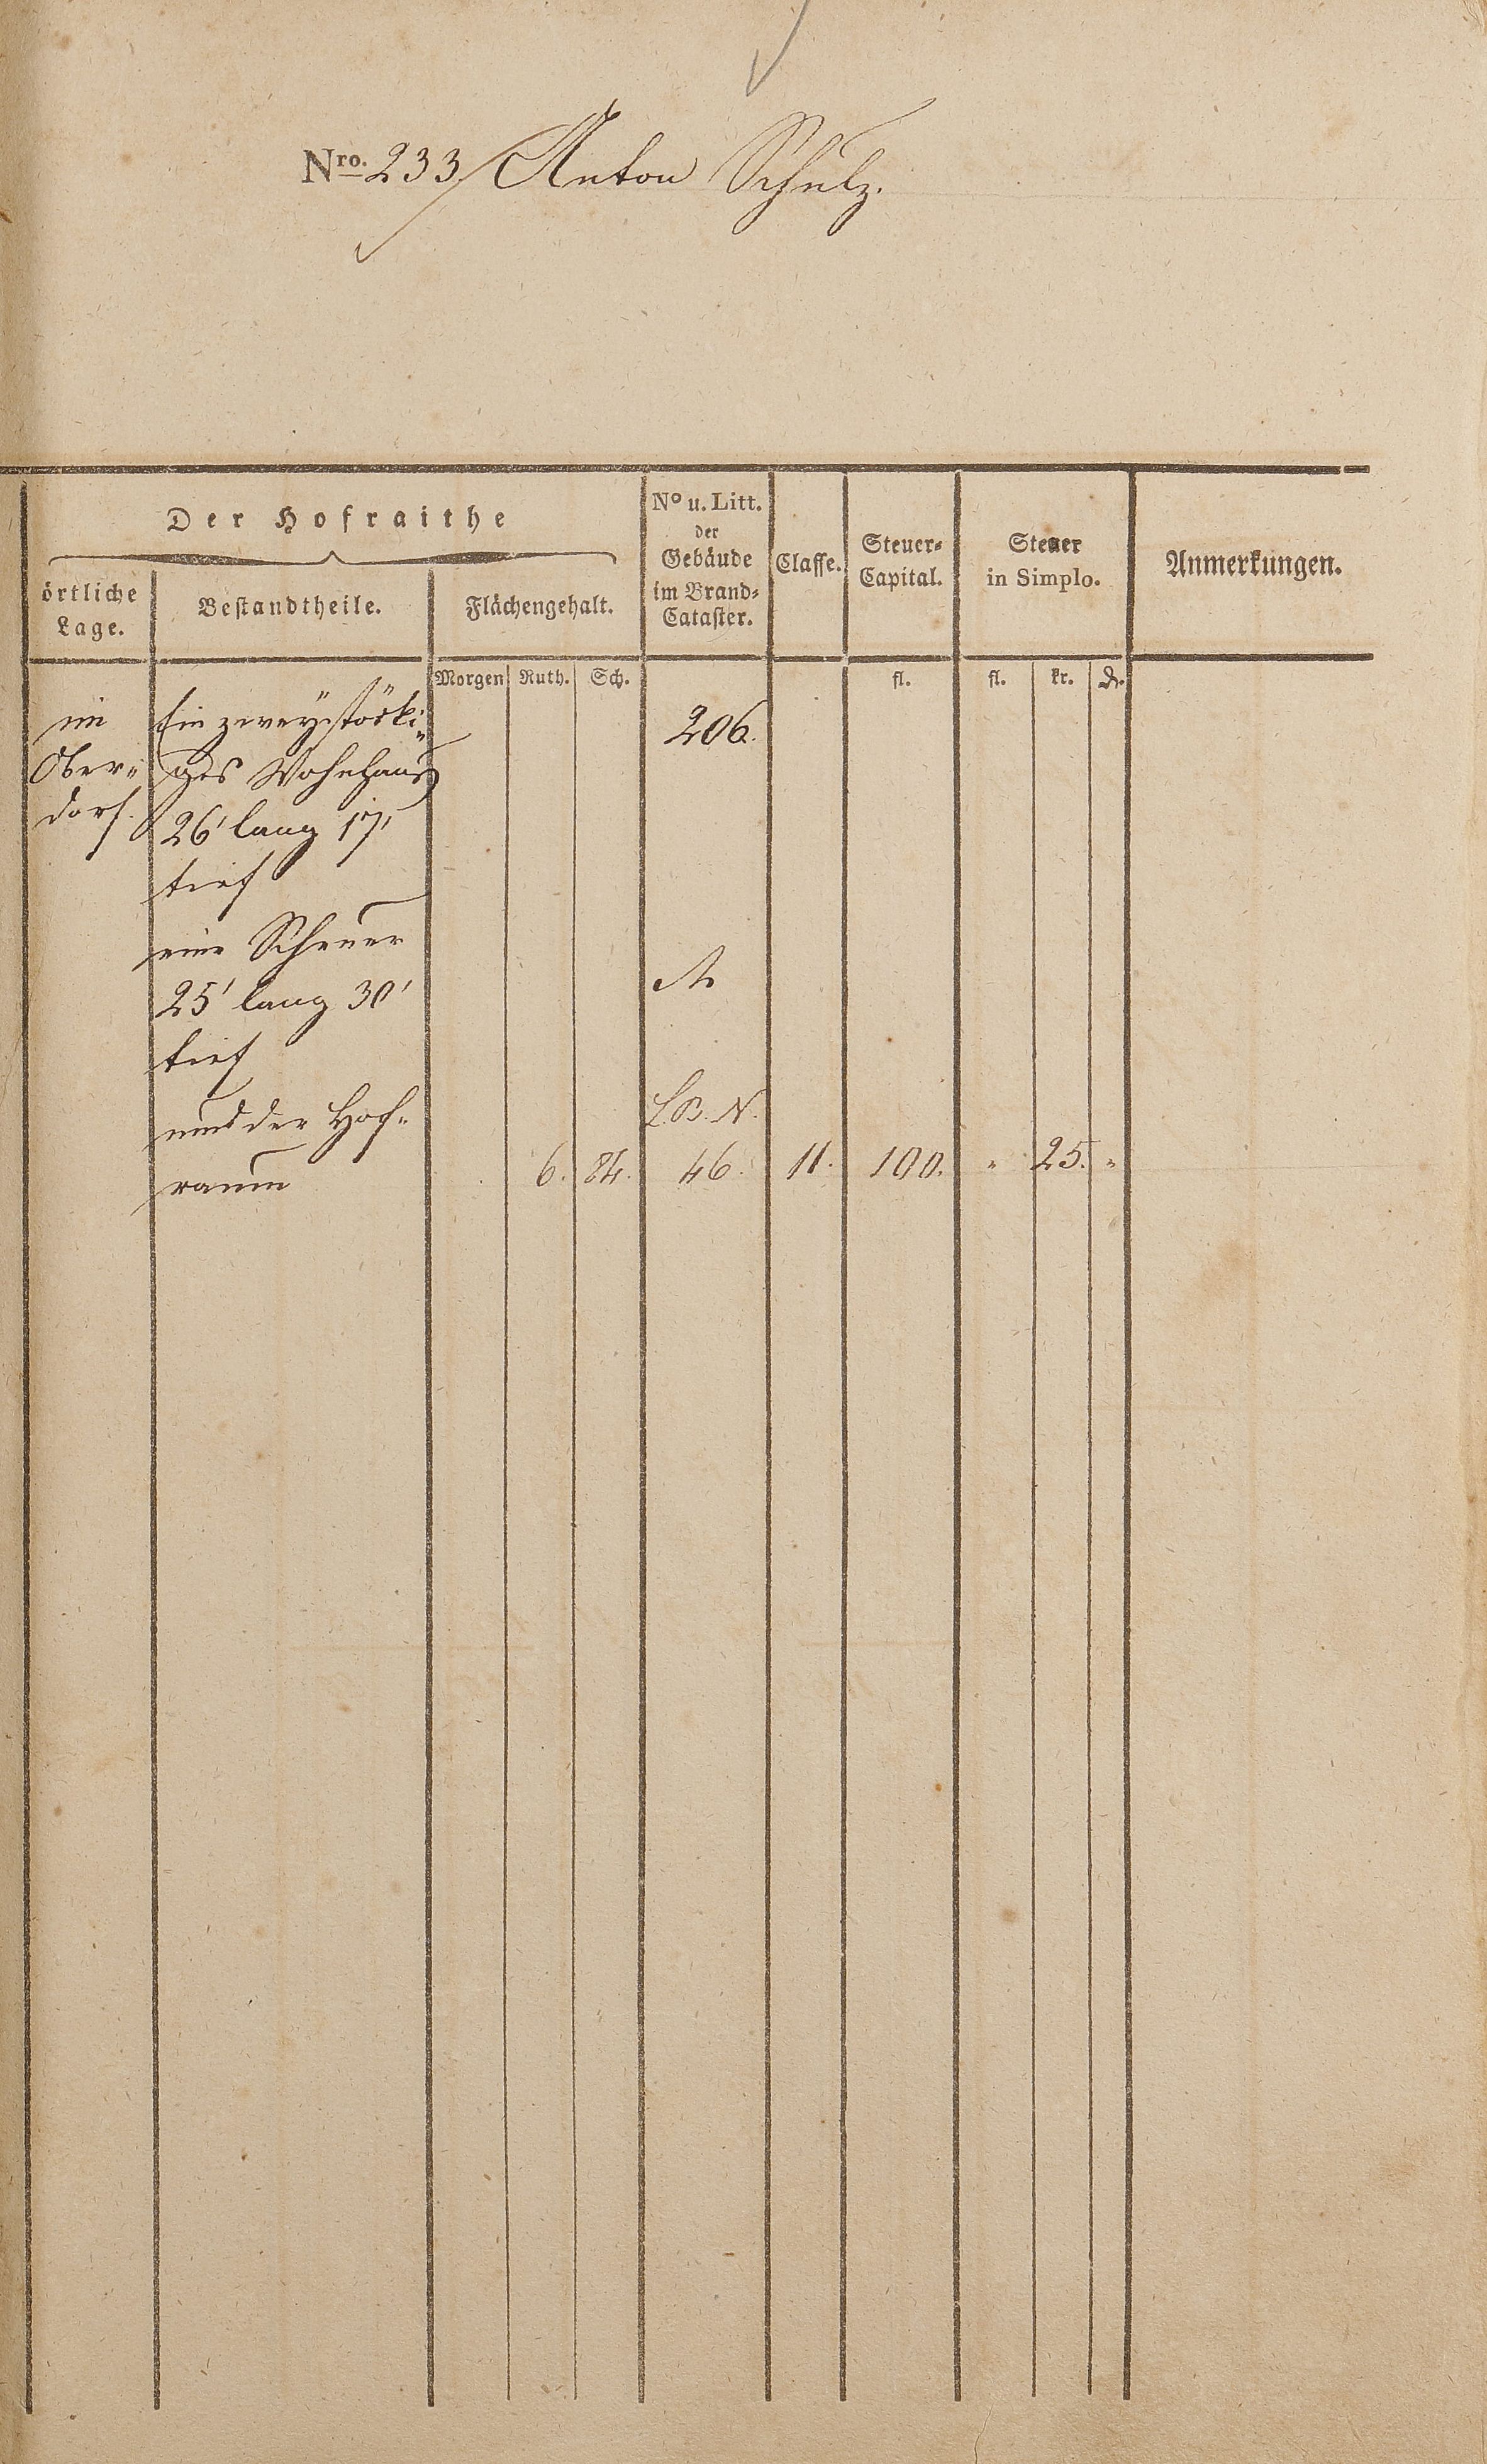 Nro. 233 Anton Schulz.
Der Hofraithe
örtliche Lage.
Bestandtheile.
Flächengehalt.
No u. Litt. der Gebäude im Brand-Cataster.
Classe.
Steuer-Capital.
Steuer in Simplo.
Anmerkungen.
Morgen Ruth. Sch. fl. fl. kr. d.
im Ein zweystöcki- 206.
Ober- ges Wohnhaus
dorf. 26' lang 17'
tief
eine Scheuer
25' lang 30' A
tief
und der Hof- L. B. N.
raum 6. 84. 46. 11. 100. " 25. "